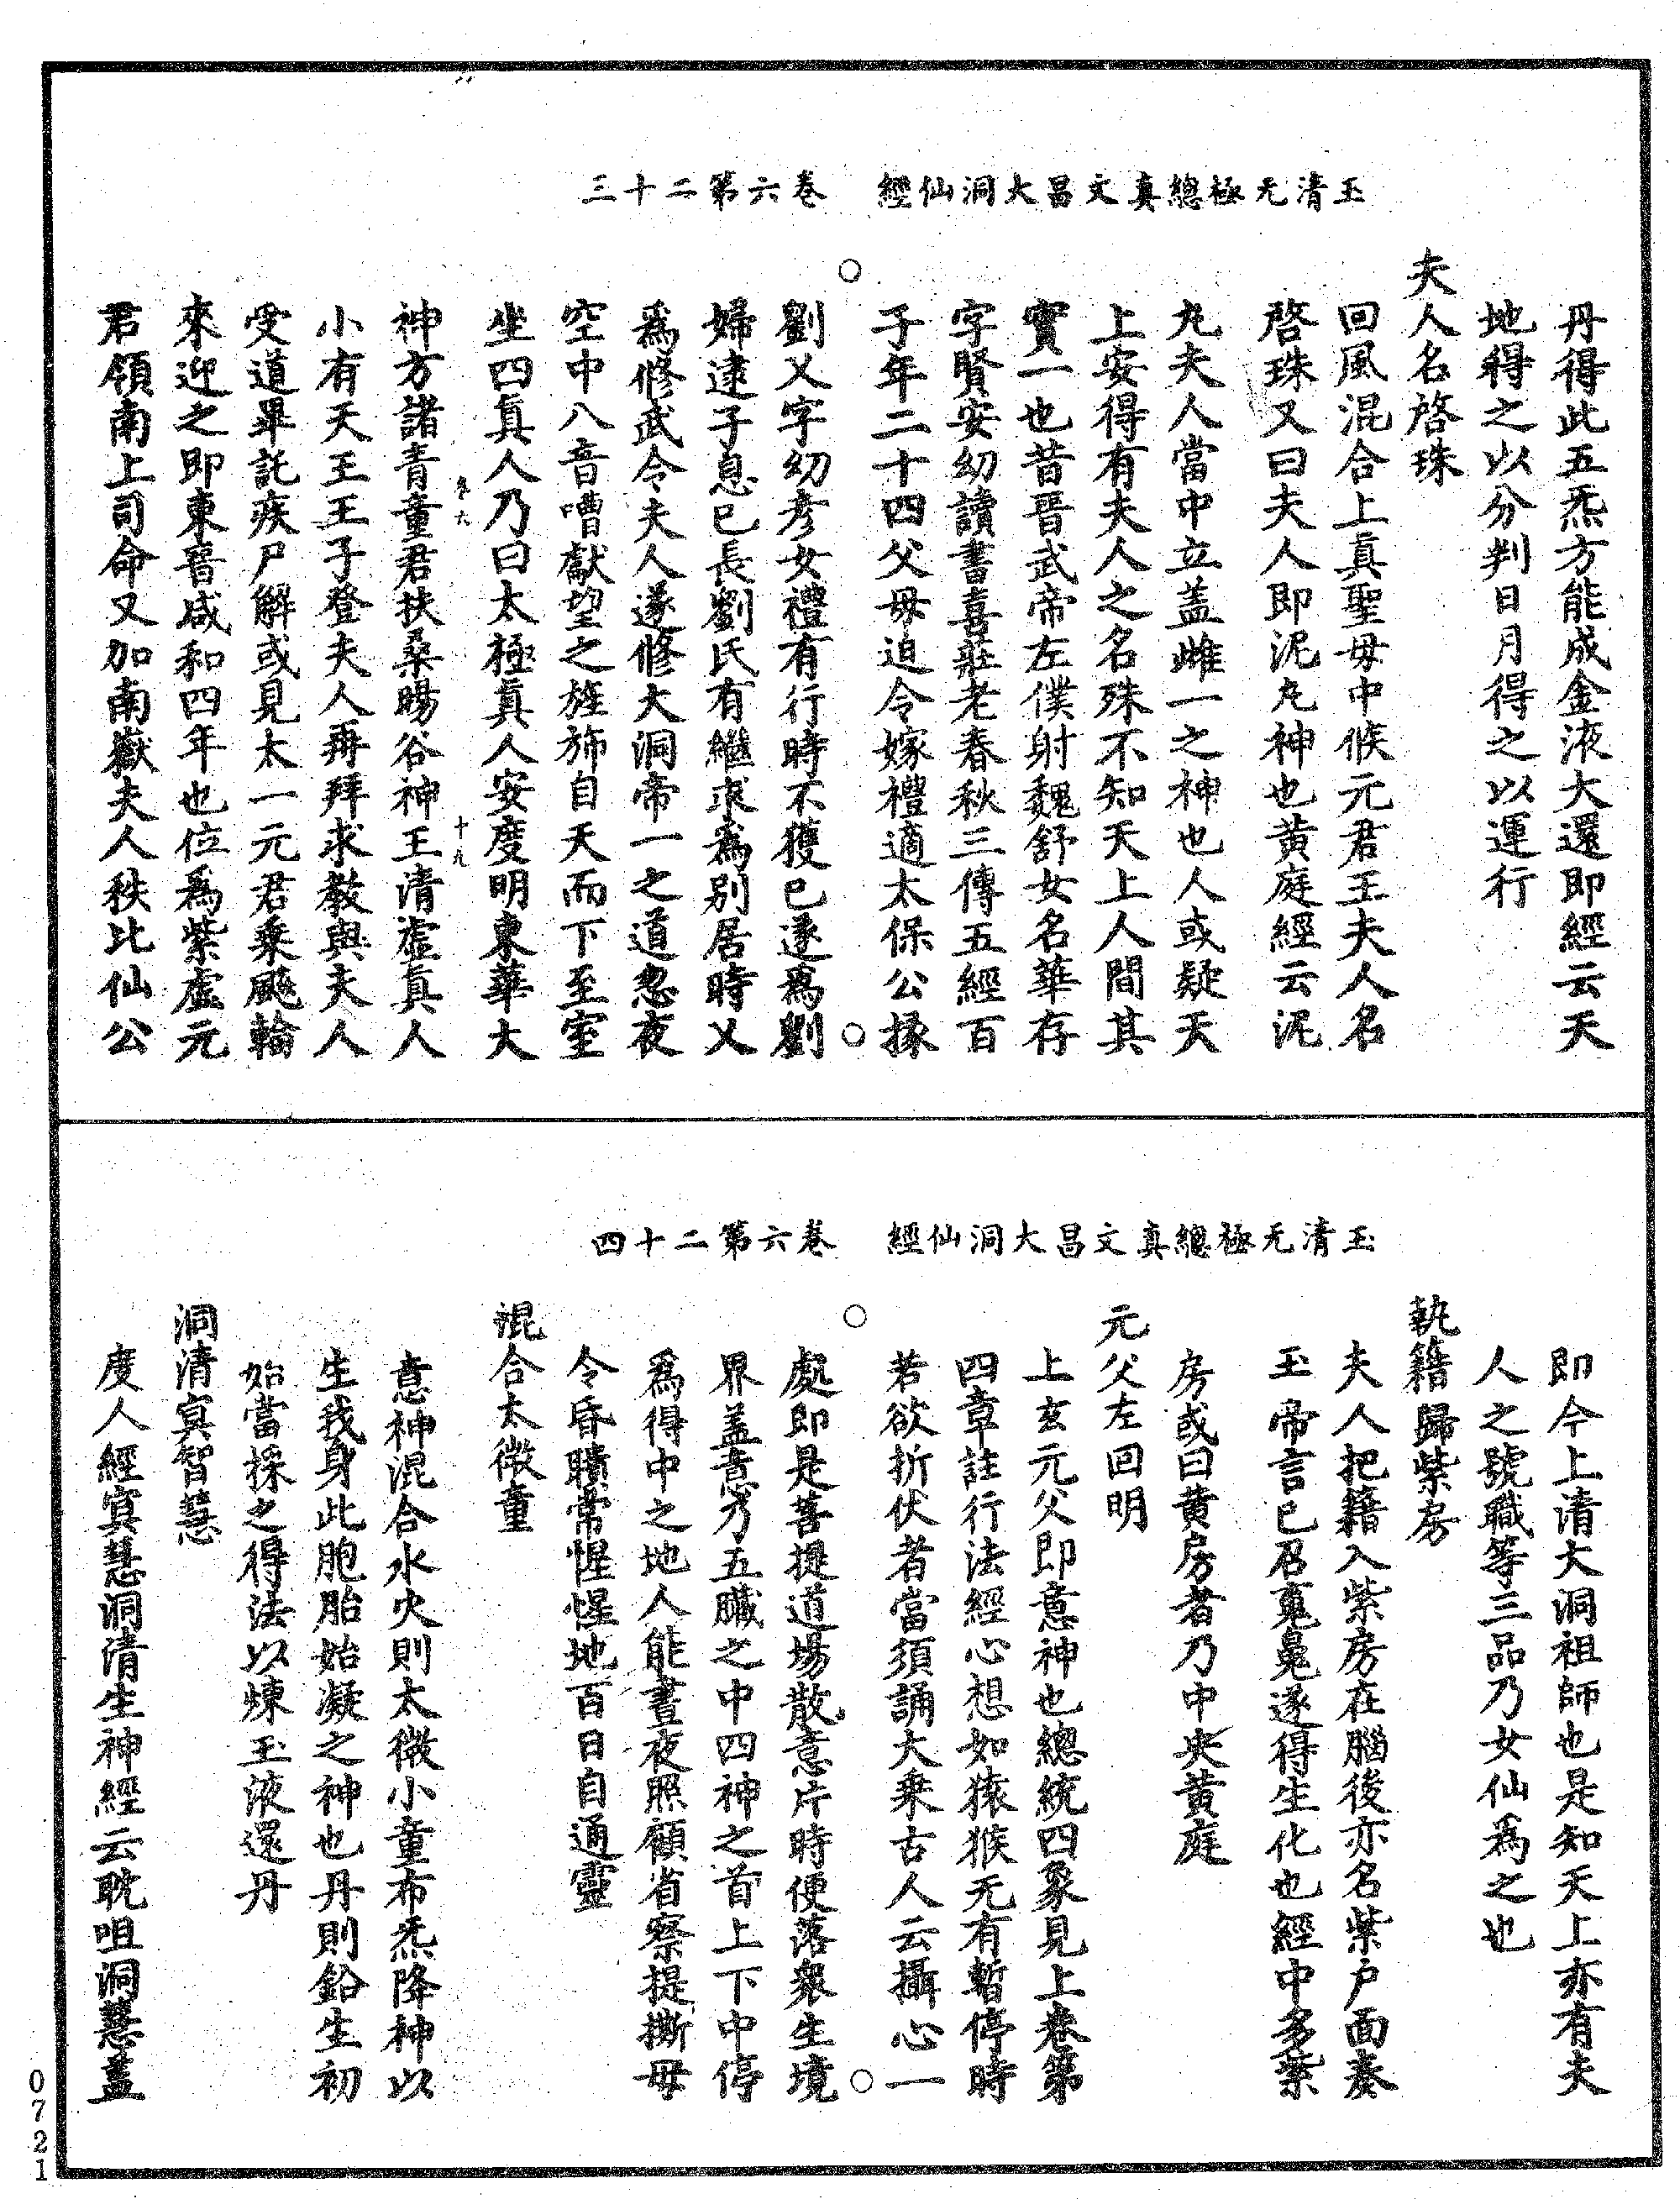 玉清无極總真文昌大洞仙經　卷六第二十三
丹得此五炁方能成金液大還即經云天
地得之以分判日月得之以運行
夫人名啓珠
回風混合上真聖母中候元君王夫人名
啓珠又曰夫人即泥丸神也黄庭經云泥
丸夫人當中立盖雌一之神也人或疑天
上安得有夫人之名殊不知天上人間其
實一也昔晉武帝左僕射魏舒女名華存
字賢安幼讀書喜莊老春秋三傳五經百
子年二十四父毋迫令嫁禮適太保公掾
劉乂字幼彦女禮有行時不獲已遂爲劉
婦逮子息已長劉氏有繼求爲别居時乂
爲修武令夫人遂修大洞帝一之道忽夜
空中八音嘈獻望之旌旆自天而下至室
坐四真人乃曰太極真人安度明東華大
神方諸青童君扶桑暘谷神王清虚真人
小有天王王子登夫人再拜求教與夫人
受道畢託疾尸解或見太一元君乗飈輪
來迎之即東晉咸和四年也位爲紫虚元
君領南上司命又加南嶽夫人秩比仙公
十九
玉清无極總真文昌大洞仙經　卷六第二十四
即今上清大洞祖師也是知天上亦有夫
人之號職等三品乃女仙爲之也
執籍歸紫房
夫人把籍入紫房在腦後亦名紫户面奏
玉帝言已召䰟㬻遂得生化也經中多紫
房或曰黄房者乃中央黄庭
元父左回明
上玄元父即意神也總統四象見上卷第
四章註行法經心想如猿猴无有暫停時
若欲折伏者當須誦大乗古人云攝心一
處即是菩提道場散意片時便落衆生境
界盖意乃五臟之中四神之首上下中停
爲得中之地人能晝夜照顧省察提撕毋
令昏瞶常惺惺地百日自通靈
混合太微童
意神混合水火則太微小童布炁降神以
生我身此胞胎始凝之神也丹則鉛生初
始當採之得法以煉玉液還丹
洞清㝠智慧
度人經㝠慧洞清生神經云耽咀洞慧盖
0721